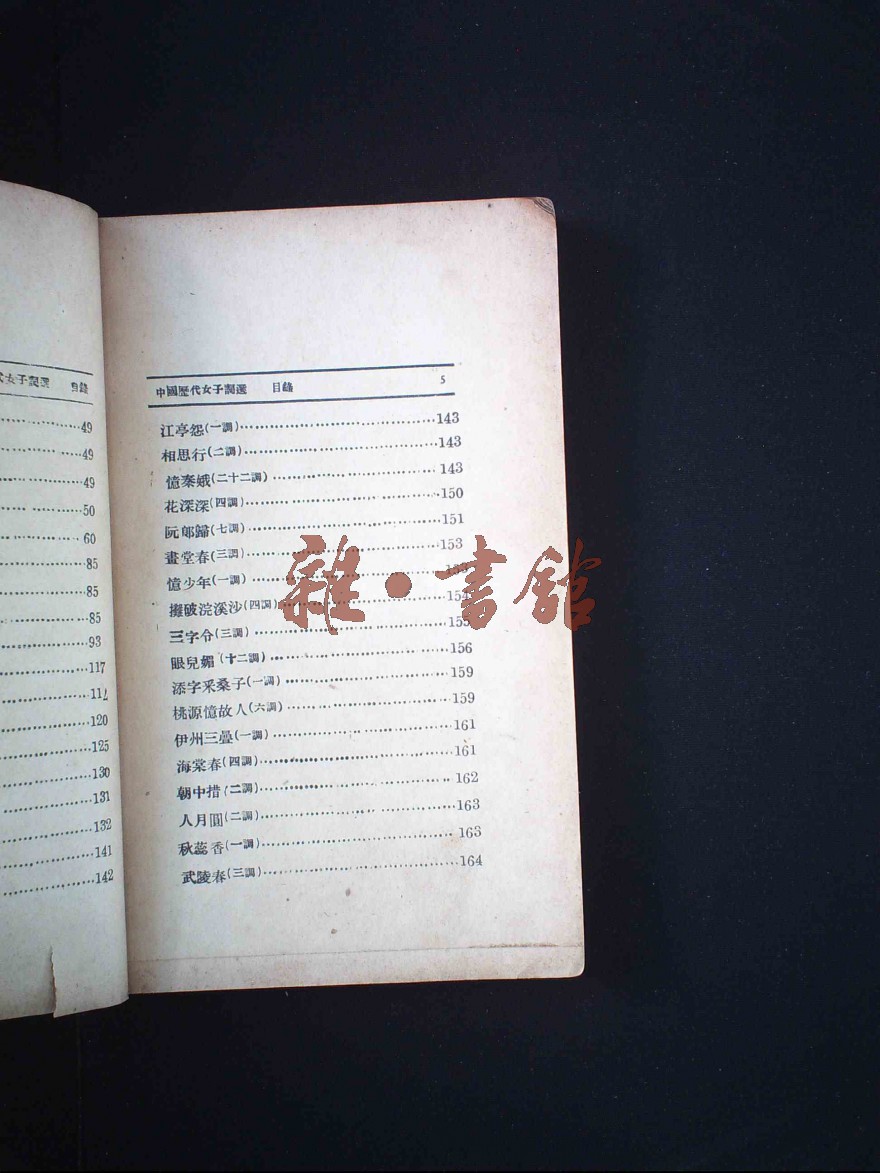 女子詞選 目錄
49
49
49
50
60
85
85
85
93
117
112
120
125
130
131
132
141
142
中國歷代女子詞選 目錄 5
江亭怨(一調)143
相思行(二調)143
憶秦娥(二十二調)143
花深深(四調)150
阮郎歸(七調)151
畫堂春(三調)153
憶少年(一調)153
攤破浣溪沙(四調)154
三字令(三調)155
眼兒媚(十二調)156
添字釆桑子(一調)159
桃源憶故人(六調)159
伊州三疊(一調)161
海棠春(四調)161
朝中措(二調)162
人月圓(二調)163
秋蕊香(一調)163
武陵春(三調)164
雜·書館